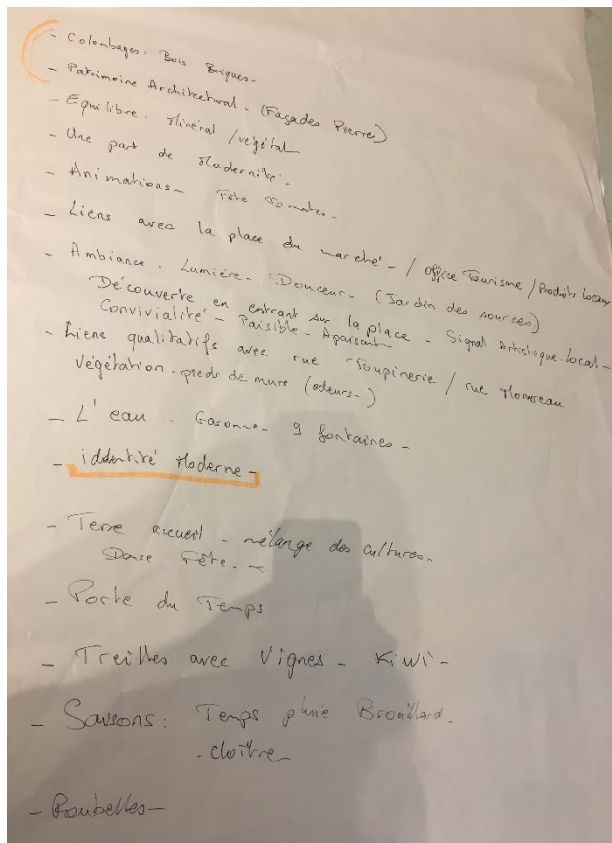 - Colombages : Bois Briques -
- Patrimoine Architectural - (Façades Pierre)
- Equilibre - Minéral / végétal
- Une part de Modernité -
- Animations - Fête Tomates -
- Liens avec la place du marché - / Office Tourisme / Produits Locaux
- Ambiance - Lumière - Douceur - (Jardin des sources)
Découverte en entrant sur la place - Signal Artistique local -
Convivialité - Paisible - Apaisant
- Liens qualitatifs avec rue Toupinerie /
végétation - pieds de murs (odeurs -)
- L'eau - Garonne - 9 fontaines -
- iddentité Moderne -
- Terre accueil - mélange des cultures -
Danse Fête -
- Porte du Temps
- Treilles avec Vignes - Kiwi -
- Saisons : Temps pluie Brouillard -
- cloître -
- Poubelles -